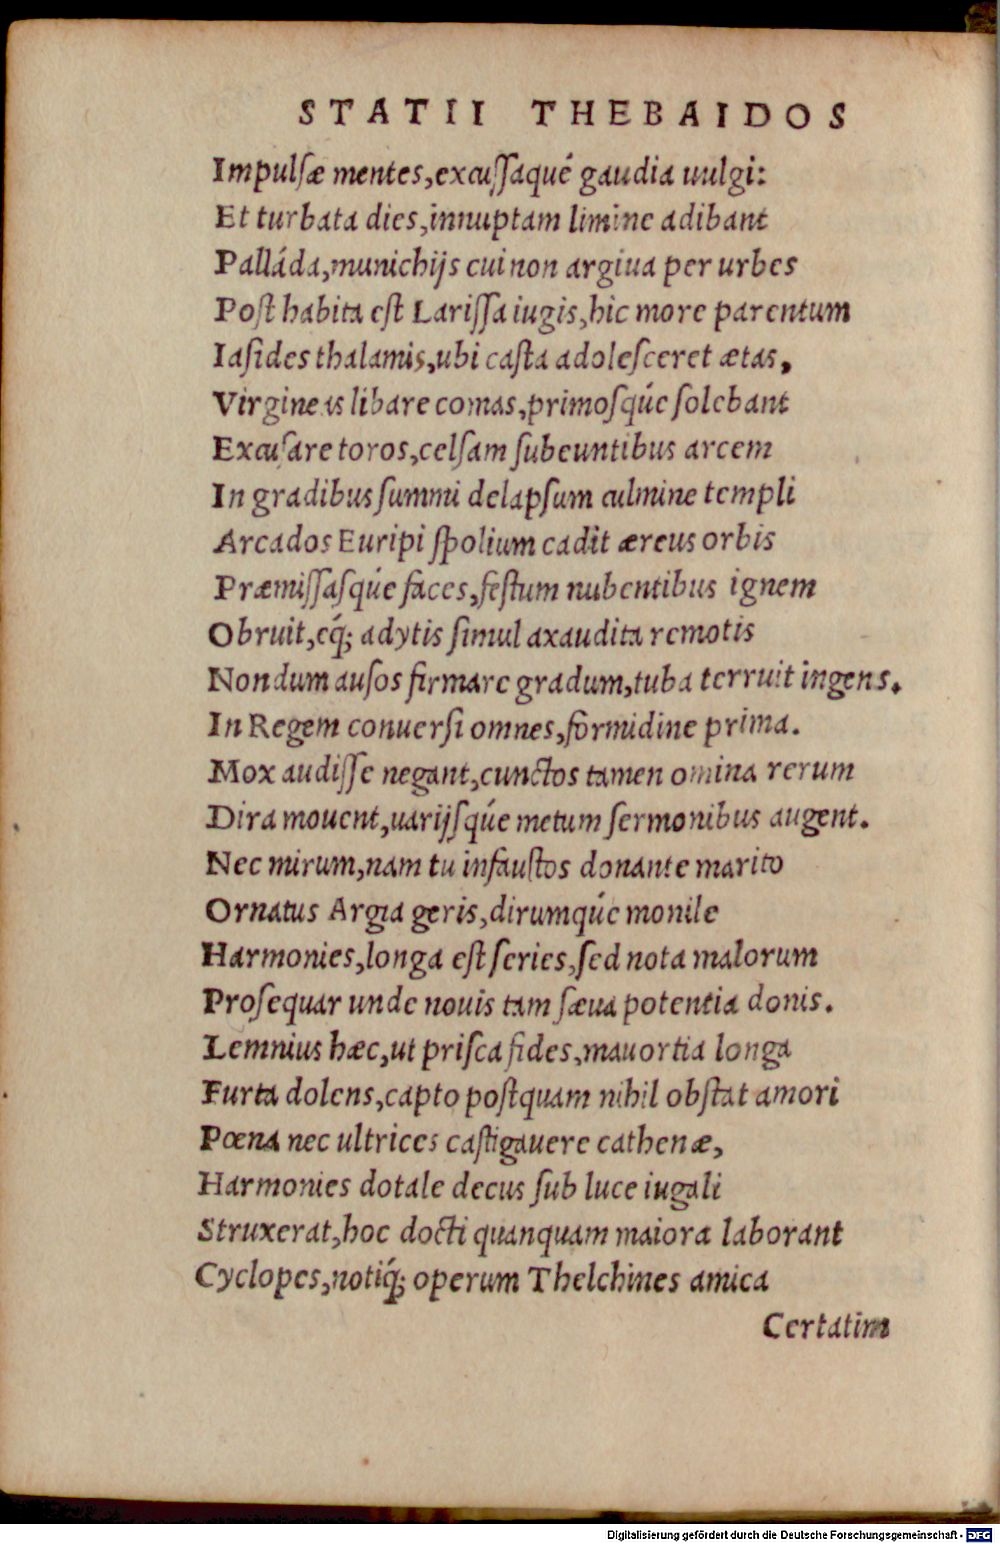 STATII THEBAIDOS
Impulſæ mentes,excuſſaqué gaudia uulgi:
Et turbata dies,innuptam limine adibant
Palláda,munichijs cui non argiua per urbes
Poſt habita eſt Lariſſa iugis,hic more parentum
Iaſides thalamis,ubi caſta adoleſceret ætas,
Virgineas libare comas,primoſqúe ſolebant
Excuſare toros,celſam ſubeuntibus arcem
In gradibus ſummi delapſum culmine templi
Arcados Euripi ſpolium cadit æreus orbis
Præmiſſaſqúe faces,feſtum nubentibus ignem
Obruit,eq́; adytis ſimul axaudita remotis
Nondum auſos firmare gradum,tuba terruit ingens.
In Regem conuerſi omnes,formidine prima.
Mox audiſſe negant,cunctos tamen omina rerum
Dira mouent,uarijſqúe metum ſermonibus augent.
Nec mirum,nam tu infauſtos donante marito
Ornatus Argia geris,dirumqúe monile
Harmonies,longa eſt ſeries,ſed nota malorum
Proſequar unde nouis tam ſæua potentia donis.
Lemnius hæc,ut priſca fides,mauortia longa
Furta dolens,capto poſtquam nihil obſtat amori
Pœna nec ultrices caſtigauere cathenæ,
Harmonies dotale decus ſub luce iugali
Struxerat,hoc docti quanquam maiora laborant
Cyclopes,notiq́; operum Thelchines amica
Certatim
Digitalisierung gefördert durch die Deutsche Forschungsgemeinschaft - DFG